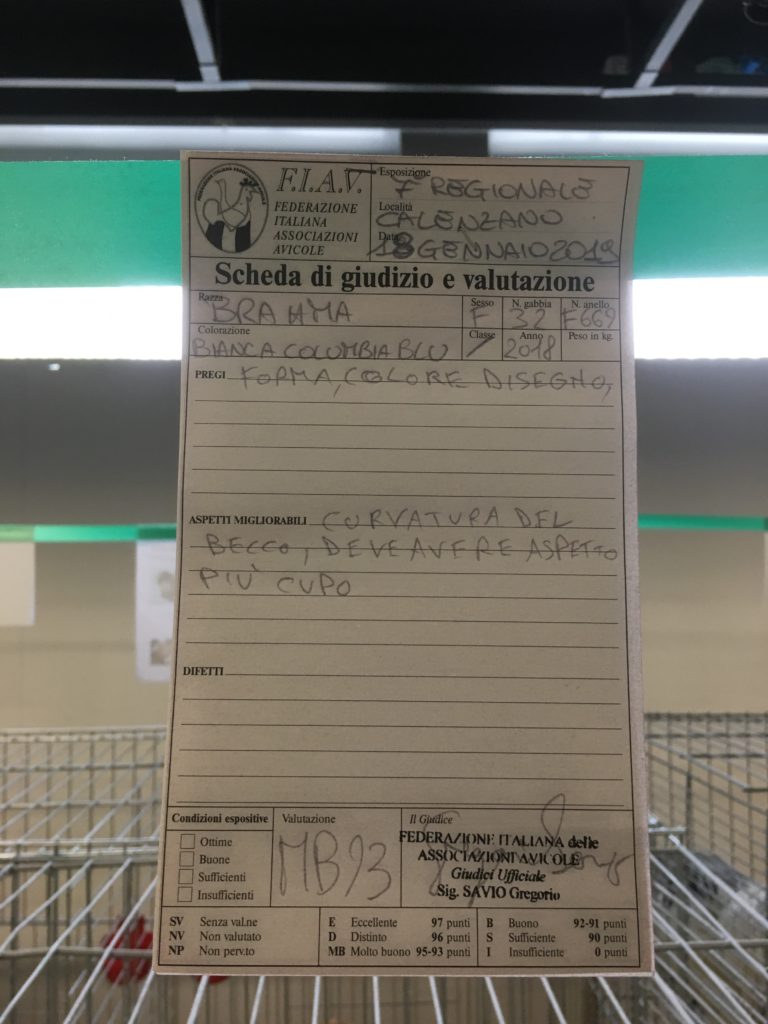 F.I.A.V.
FEDERAZIONE
ITALIANA
ASSOCIAZIONI
AVICOLE
Esposizione 7ª REGIONALE
Località CALENZANO
Data 18 GENNAIO 2019
Scheda di giudizio e valutazione
Razza BRAHMA Sesso F N. gabbia 32 N. anello F669
Colorazione BIANCA COLUMBIA BLU Classe / Anno 2018 Peso in kg.
PREGI FORMA, COLORE DISEGNO,
ASPETTI MIGLIORABILI CURVATURA DEL
BECCO, DEVE AVERE ASPETTO
PIÙ CUPO
DIFETTI
Condizioni espositive
Ottime
Buone
Sufficienti
Insufficienti
Valutazione
MB93
Il Giudice
FEDERAZIONE ITALIANA delle
ASSOCIAZIONI AVICOLE
Giudici Ufficiale
Sig. SAVIO Gregorio
SV Senza val.ne E Eccellente 97 punti B Buono 92-91 punti
NV Non valutato D Distinto 96 punti S Sufficiente 90 punti
NP Non perv.to MB Molto buono 95-93 punti I Insufficiente 0 punti